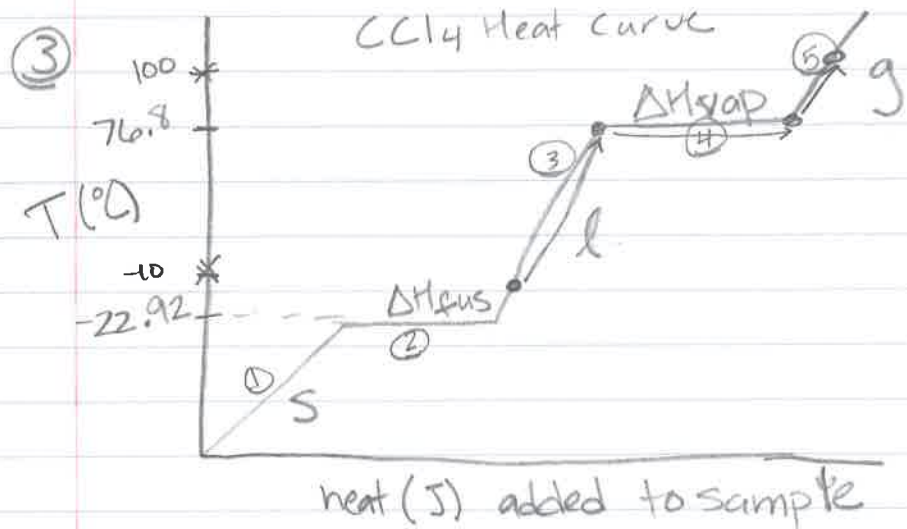 ③
CCl4 Heat Curve
100
76.8
T (°C)
-10
-22.92
① S
ΔHfus
②
③ l
ΔHvap
④
⑤ g
heat (J) added to sample